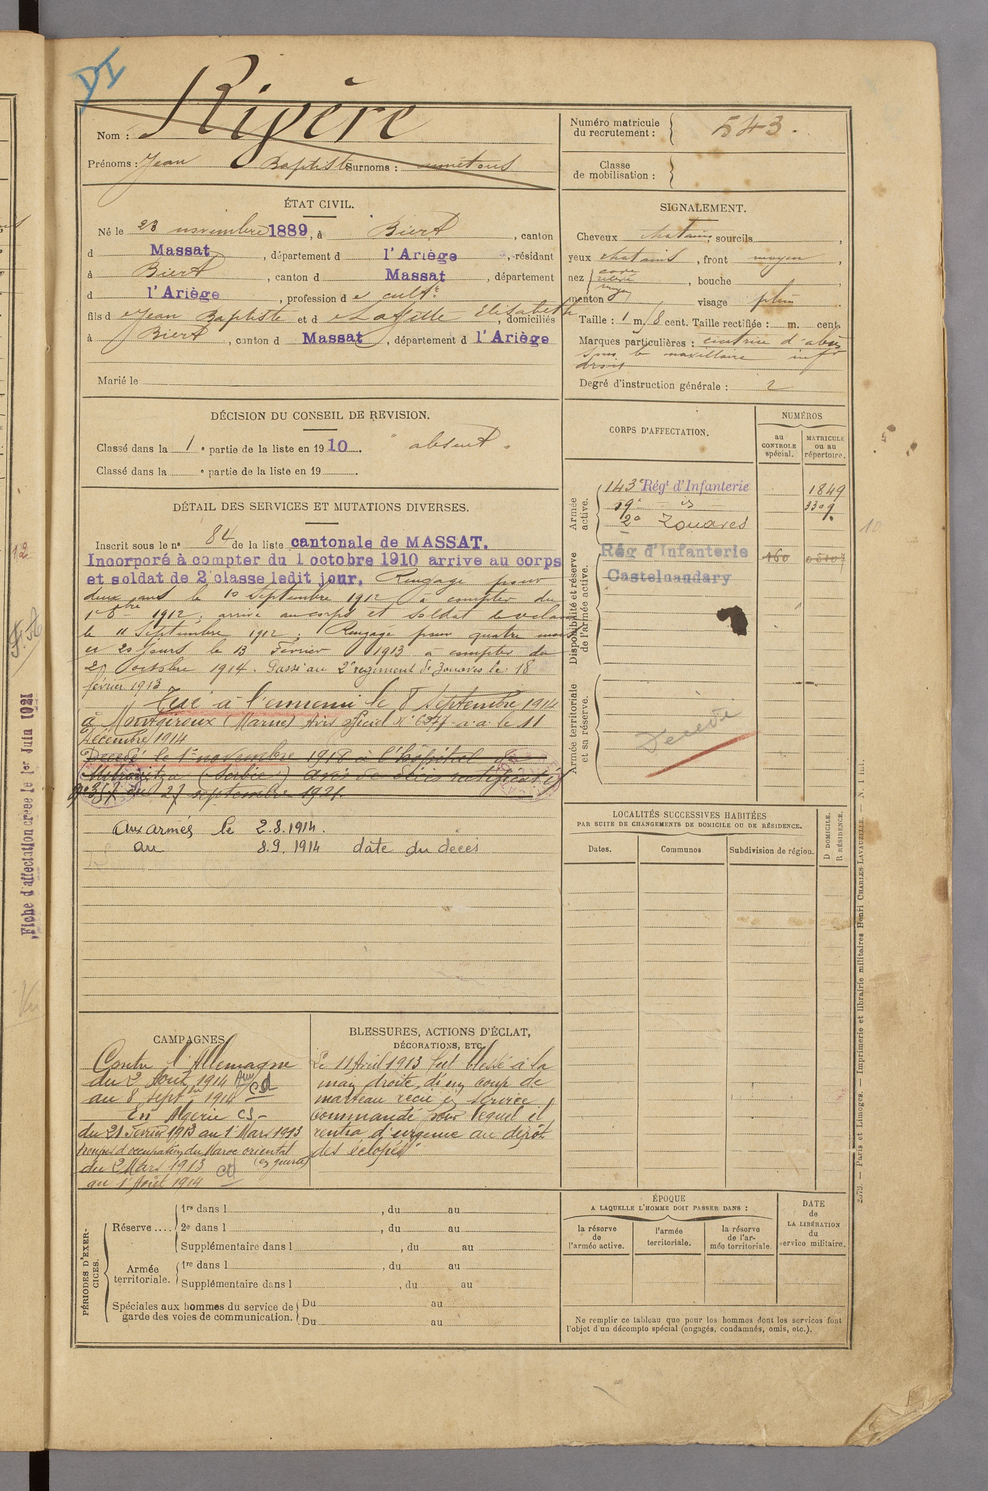 DI
Nom : Rivère
Prénoms : Jean Baptiste Surnoms :
Numéro matricule du recrutement : 543.
Classe de mobilisation :
ÉTAT CIVIL.
Né le 23 novembre 1889, à Biert, canton
d Massat, département d l'Ariège, résidant
à Biert, canton d Massat, département
d l'Ariège, profession de cultr
fils d Jean Baptiste et d Lafille Elisabeth, domiciliés
à Biert, canton d Massat, département d l'Ariège
Marié le
SIGNALEMENT.
Cheveux chatains sourcils
yeux chatains, front moyen,
nez, bouche
menton, visage plein
Taille : 1 m/8 cent. Taille rectifiée : m. cent.
Marques particulières : cicatrice d'abcès
sous le maxillaire infr
droit
Degré d'instruction générale : 2
DÉCISION DU CONSEIL DE REVISION.
Classé dans la 1e partie de la liste en 1910. " absent "
Classé dans la e partie de la liste en 19
DÉTAIL DES SERVICES ET MUTATIONS DIVERSES.
Inscrit sous le n° 84 de la liste cantonale de MASSAT.
Incorporé à compter du 1 octobre 1910 arrive au corps
et soldat de 2e classe ledit jour. Rengagé pour
deux ans le 10 Septembre 1912 à compter du
1er 8bre 1912, arrivé au corps et soldat de
le 11 Septembre 1912; Rengagé pour quatre mois
et 20 jours le 13 Février 1913 à compter du
octobre 1914. Passé au 2e régiment de Zouaves le 18
février 1913
Tué à l'ennemi le 8 Septembre 1914
à Montgivroux (Marne) avis officiel N°
Décembre 1914
Décédé le 1er novembre 1918 à l'hôpital
(Serbie) avis de décès rectificatif
du 27 septembre 1921.
Aux armés le 2.8.1914.
au 8.9.1914 date du décès
CORPS D'AFFECTATION.
NUMÉROS
au CONTROLE spécial.
MATRICULE ou au répertoire.
Armée active.
143e Régt d'Infanterie 1849
2e Zouaves
Disponibilité et réserve de l'armée active.
Rég d'Infanterie
Castelnaudary
160
Armée territoriale et sa réserve.
Décédé
LOCALITÉS SUCCESSIVES HABITÉES
PAR SUITE DE CHANGEMENTS DE DOMICILE OU DE RÉSIDENCE.
Dates.
Communes
Subdivision de région.
D DOMICILE.
R RÉSIDENCE.
CAMPAGNES
Contre l'Allemagne
du 2 Aout 1914
au 8 Septbre 1914
En Algérie CS
du 21 Fevrier 1913 au 1er Mars 1913
troupes d'occupation du Maroc oriental
du 2 Mars 1913 (en guerre)
au 1 Aout 1914
BLESSURES, ACTIONS D'ÉCLAT,
DÉCORATIONS, ETC.
Le 11 Avril 1913 fut blessé à la
main droite, d'un coup de
marteau reçu en service
commandé pour lequel il
rentra d'urgence au dépôt
des éclopés
PÉRIODES D'EXERCICES.
Réserve ....
1re dans l, du au
2e dans l, du au
Supplémentaire dans l, du au
Armée territoriale.
1re dans l, du au
Supplémentaire dans l, du au
Spéciales aux hommes du service de garde des voies de communication.
Du au
Du au
ÉPOQUE
A LAQUELLE L'HOMME DOIT PASSER DANS :
la réserve de l'armée active.
l'armée territoriale.
la réserve de l'armée territoriale.
DATE de LA LIBÉRATION du service militaire.
Ne remplir ce tableau que pour les hommes dont les services font
l'objet d'un décompte spécial (engagés, condamnés, omis, etc.).
Paris et Limoges. — Imprimerie et librairie militaires Henri CHARLES-LAVAUZELLE.
Fiche d'affectation créée le 1er Juin 1921